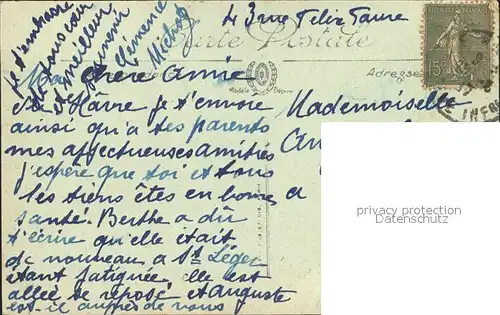 4 3 rue Félix Faure
Carte Postale
Ma chère amie
Modèle Déposé
Adresse
du Hâvre je t'envoie
ainsi qu'à tes parents
mes affectueuses amitiés
j'espère que toi et tous
les tiens êtes en bonne
santé. Berthe a dû
t'écrire qu'elle était
de nouveau à St Léger
étant fatiguée. elle est
allée se reposé et Auguste
est-il auprès de vous
je t'embrasse
de tout cœur
et meilleur
souvenir
Clémence
Mademoiselle
a
15c
privacy protection
Datenschutz